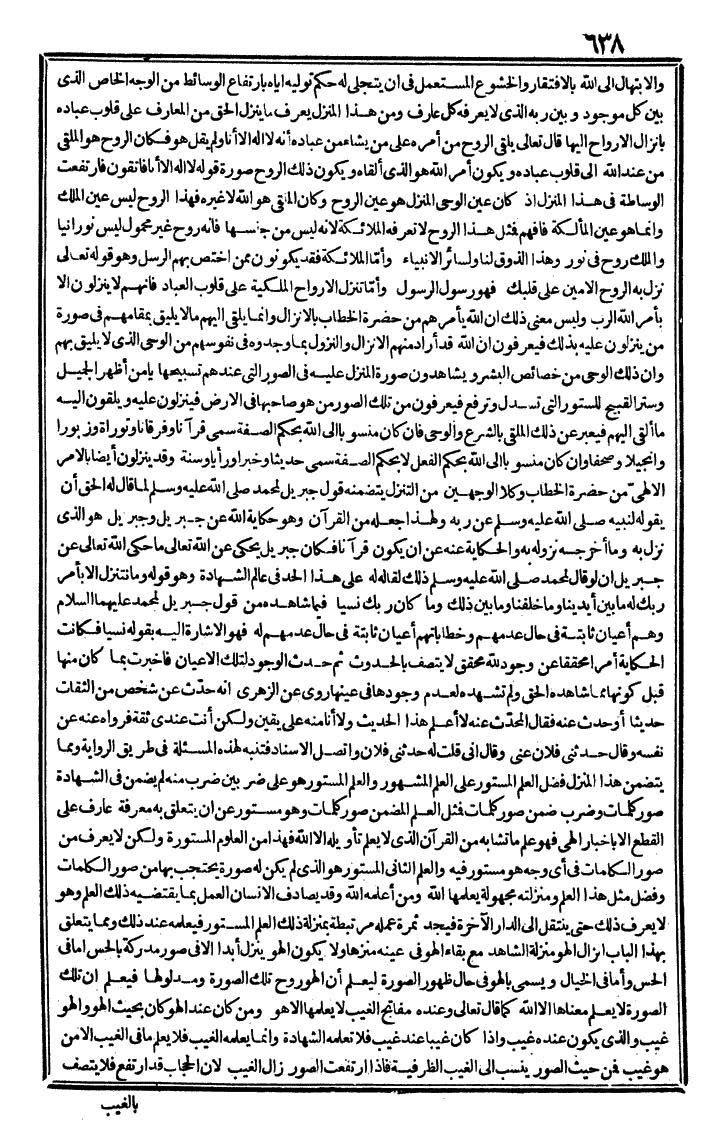 ٦٣٨
والابتهال الى الله بالافتقار والخشوع المستعمل فى ان يتجلى له حكم توليه اياه بارتفاع الوسائط من الوجه الخاص الذى
بين كل موجود وبين ربه الذى لا يعرفه كل عارف ومن هذا المنزل يعرف ما ينزل الحق من المعارف على قلوب عباده
بانزال الارواح اليها قال تعالى يلقى الروح من أمره على من يشاء من عباده أنه لا اله الا أنا ولم يقل هو فكان الروح هو الملقى
من عند الله الى قلوب عباده ويكون أمر الله هو الذى ألقاه ويكون ذلك الروح صورة قوله لا اله الا أنا فاتقون فارتفعت
الوساطة فى هذا المنزل اذ كان عين الوحى المنزل هو عين الروح وكان الملقى هو الله لا غيره فهذا الروح ليس عين الملك
وانما هو عين المألكة فافهم فمثل هذا الروح لا تعرفه الملائكة لانه ليس من جنسها فانه روح غير محمول ليس نورانيا
والملك روح فى نور وهذا الذوق لنا ولسائر الانبياء وأما الملائكة فقد يكونون ممن اختص بهم الرسل وهو قوله تعالى
نزل به الروح الامين على قلبك فهو رسول الرسول وأما تنزل الارواح الملكية على قلوب العباد فانهم لا ينزلون الا
بأمر الله الرب وليس معنى ذلك ان الله يأمرهم من حضرة الخطاب بالانزال وانما يلقى اليهم ما لا يليق بمقامهم فى صورة
من ينزلون عليه بذلك فيعرفون ان الله قد أراد منهم الانزال والنزول بما وجدوه فى نفوسهم من الوحى الذى لا يليق بهم
وان ذلك الوحى من خصائص البشر ويشاهدون صورة المنزل عليه فى الصور التى عندهم تسبيحها يا من أظهر الجميل
وستر القبيح للستور التى تسدل وترفع فيعرفون من تلك الصور من هو صاحبها فى الارض فينزلون عليه ويلقون اليه
ما ألقى اليهم فيعبر عن ذلك الملقى بالشرع والوحى فان كان منسوبا الى الله بحكم الصفة سمى قرآنا وفرقانا وتوراة وزبورا
وانجيلا وصحفا وان كان منسوبا الى الله بحكم الفعل لا بحكم الصفة سمى حديثا وخبرا ورأيا وسنة وقد ينزلون أيضا بالامر
الالهى من حضرة الخطاب وكلا الوجهين من التنزل يتضمنه قول جبريل لمحمد صلى الله عليه وسلم لما قال له الحق أن
يقوله لنبيه صلى الله عليه وسلم عن ربه ولهذا جعله من القرآن وهو حكاية الله عن جبريل وجبريل هو الذى
نزل به وما أخرجه نزوله به والحكاية عنه عن ان يكون قرآنا فكان جبريل يحكى عن الله تعالى ما حكى الله تعالى عن
جبريل ان لو قال لمحمد صلى الله عليه وسلم ذلك لقاله له على هذا الحد فى عالم الشهادة وهو قوله وما نتنزل الا بأمر
ربك له ما بين أيدينا وما خلفنا وما بين ذلك وما كان ربك نسيا فيما شاهده من قول جبريل لمحمد عليهما السلام
وهم أعيان ثابتة فى حال عدمهم وخطاباتهم أعيان ثابتة فى حال عدمهم له فهو الاشارة اليه بقوله نسيا فكانت
الحكاية أمرا محققا عن وجود لله محقق لا يتصف بالحدوث ثم حدث الوجود لتلك الاعيان فاخبرت بما كان منها
قبل كونها مما شاهده الحق ولم تشهده لعدم وجودها فى عينها روى عن الزهرى انه حدث عن شخص من الثقات
حديثا أو حدث عنه فقال المحدث عنه لا أعلم هذا الحديث ولا أنا منه على يقين ولكن أنت عندى ثقة فرواه عنه عن
نفسه وقال حدثنى فلان عنى وقال انى قلت له حدثنى فلان واتصل الاسناد فتنبه لهذه المسئلة فى طريق الرواية ومما
يتضمن هذا المنزل فضل العلم المستور على العلم المشهور والعلم المستور هو على ضربين ضرب منه لم يضمن فى الشهادة
صور كلمات وضرب ضمن صور كلمات فمثل العلم المضمن صور كلمات وهو مستور عن ان يتعلق به معرفة عارف على
القطع الا باخبار الهى فهو علم ما تشابه من القرآن الذى لا يعلم تأويله الا الله فهذا من العلوم المستورة ولكن لا يعرف من
صور الكلمات فى أى وجه هو مستور فيه والعلم الثانى المستور هو الذى لم يكن له صورة يحتجب بها من صور الكلمات
وفضل مثل هذا العلم ومنزلته مجهولة يعلمها الله ومن أعلمه الله وقد يصادف الانسان العمل بما يقتضيه ذلك العلم وهو
لا يعرف ذلك حتى ينتقل الى الدار الآخرة فيجد ثمرة عمله مرتبطة بمنزلة ذلك العلم المستور فيعلمه عند ذلك ومما يتعلق
بهذا الباب انزال الهو منزلة الشاهد مع بقاء الهو فى عينه منزها ولا يكون الهو ينزل أبدا الا فى صور مدركة بالحس اما فى
الحس وأما فى الخيال ويسمى بالهو فى حال ظهور الصورة ليعلم أن الهو روح تلك الصورة ومدلولها فيعلم ان تلك
الصورة لا يعلم معناها الا الله كما قال تعالى وعنده مفاتح الغيب لا يعلمها الا هو ومن كان عند الهو كان بحيث الهو والهو
غيب والذى يكون عنده غيب واذا كان غيبا عند غيب فلا تعلمه الشهادة وانما يعلمه الغيب فلا يعلم ما فى الغيب الا من
هو غيب فمن حيث الصور ينسب الى الغيب الظرفية فاذا ارتفعت الصور زال الغيب لان الحجاب قد ارتفع فلا يتصف
بالغيب